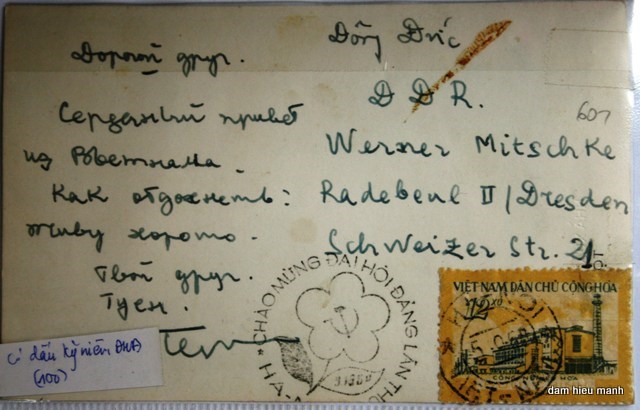 Дорогой друг.
Сердечный привет
из Вьетнама.
Как отдохнеть:
живу хорошо.
Твой друг.
Туен.
Đông Đức
D D R.
601
Werner Mitschke
Radebeul II / Dresden
Schweizer Str. 21
"CHÀO MỪNG ĐẠI HỘI ĐẢNG LẦN THỨ
HÀ-
9.1960
VIỆT NAM DÂN CHỦ CỘNG HÒA
12 xu
HANOI
VIET-NAM
Có dấu kỷ niệm ĐHĐ
(100)
dam hieu manh